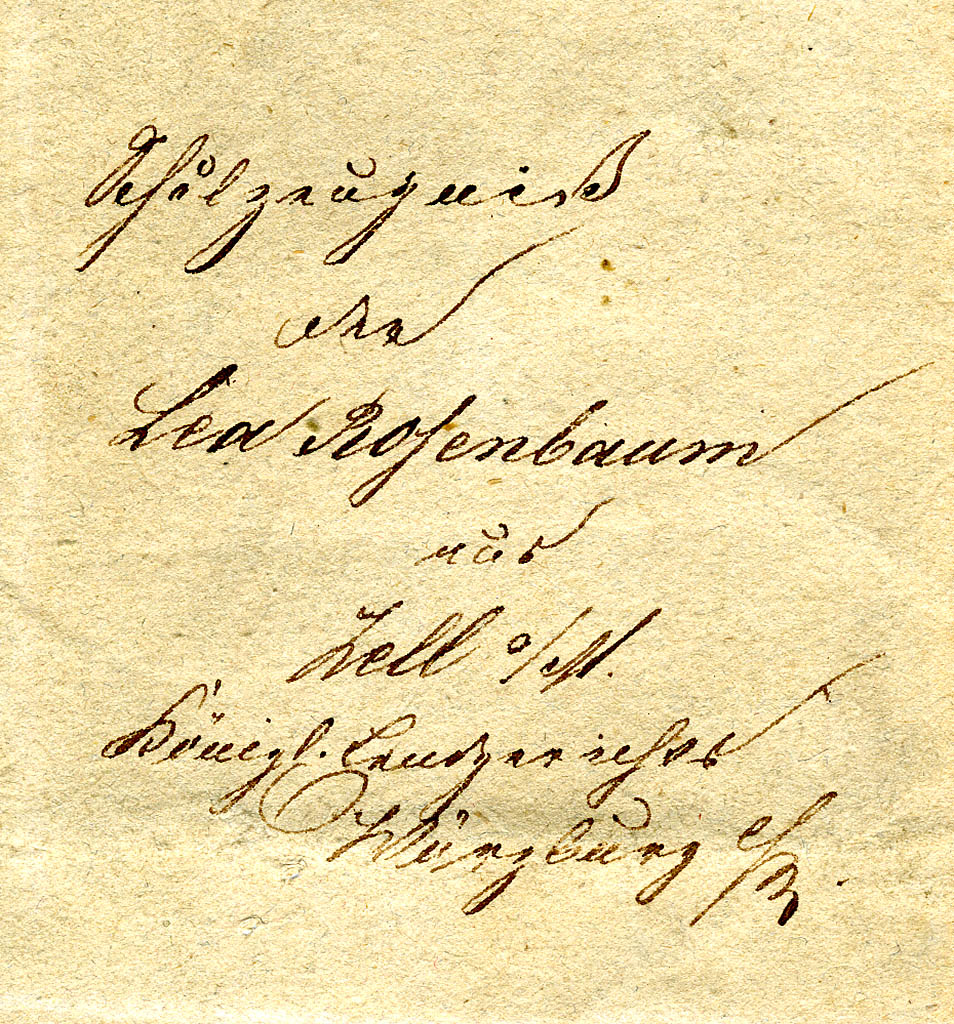 Schulzeugniß
der
Lea Rosenbaum
aus
Zell a/M.
Königl. Landgerichts
Würzburg